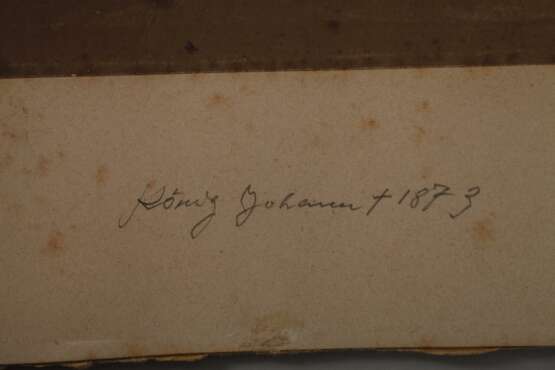 König Johann † 1873